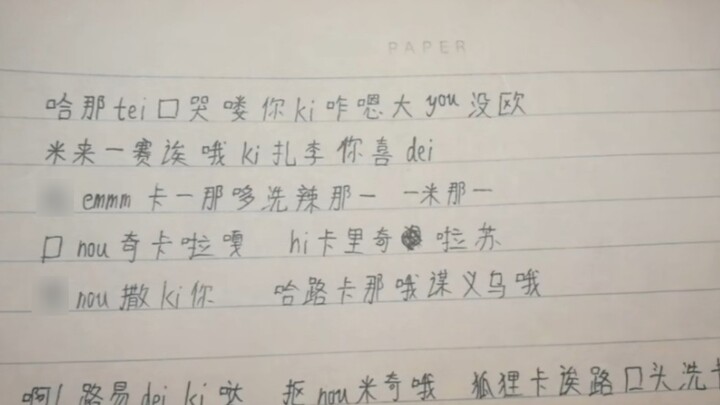 PAPER
哈那tei口哭喽你ki咋嗯大you没欧
米来一赛诶哦ki扎李你喜dei
emmm卡一那哆洗辣那一 一米那一
口nou奇卡啦嘎 hi卡里奇啦苏
nou撒ki你 哈路卡那哦谋义乌哦
啊路易dei ki哒 抠nou米奇哦 狐狸卡诶路口头洗